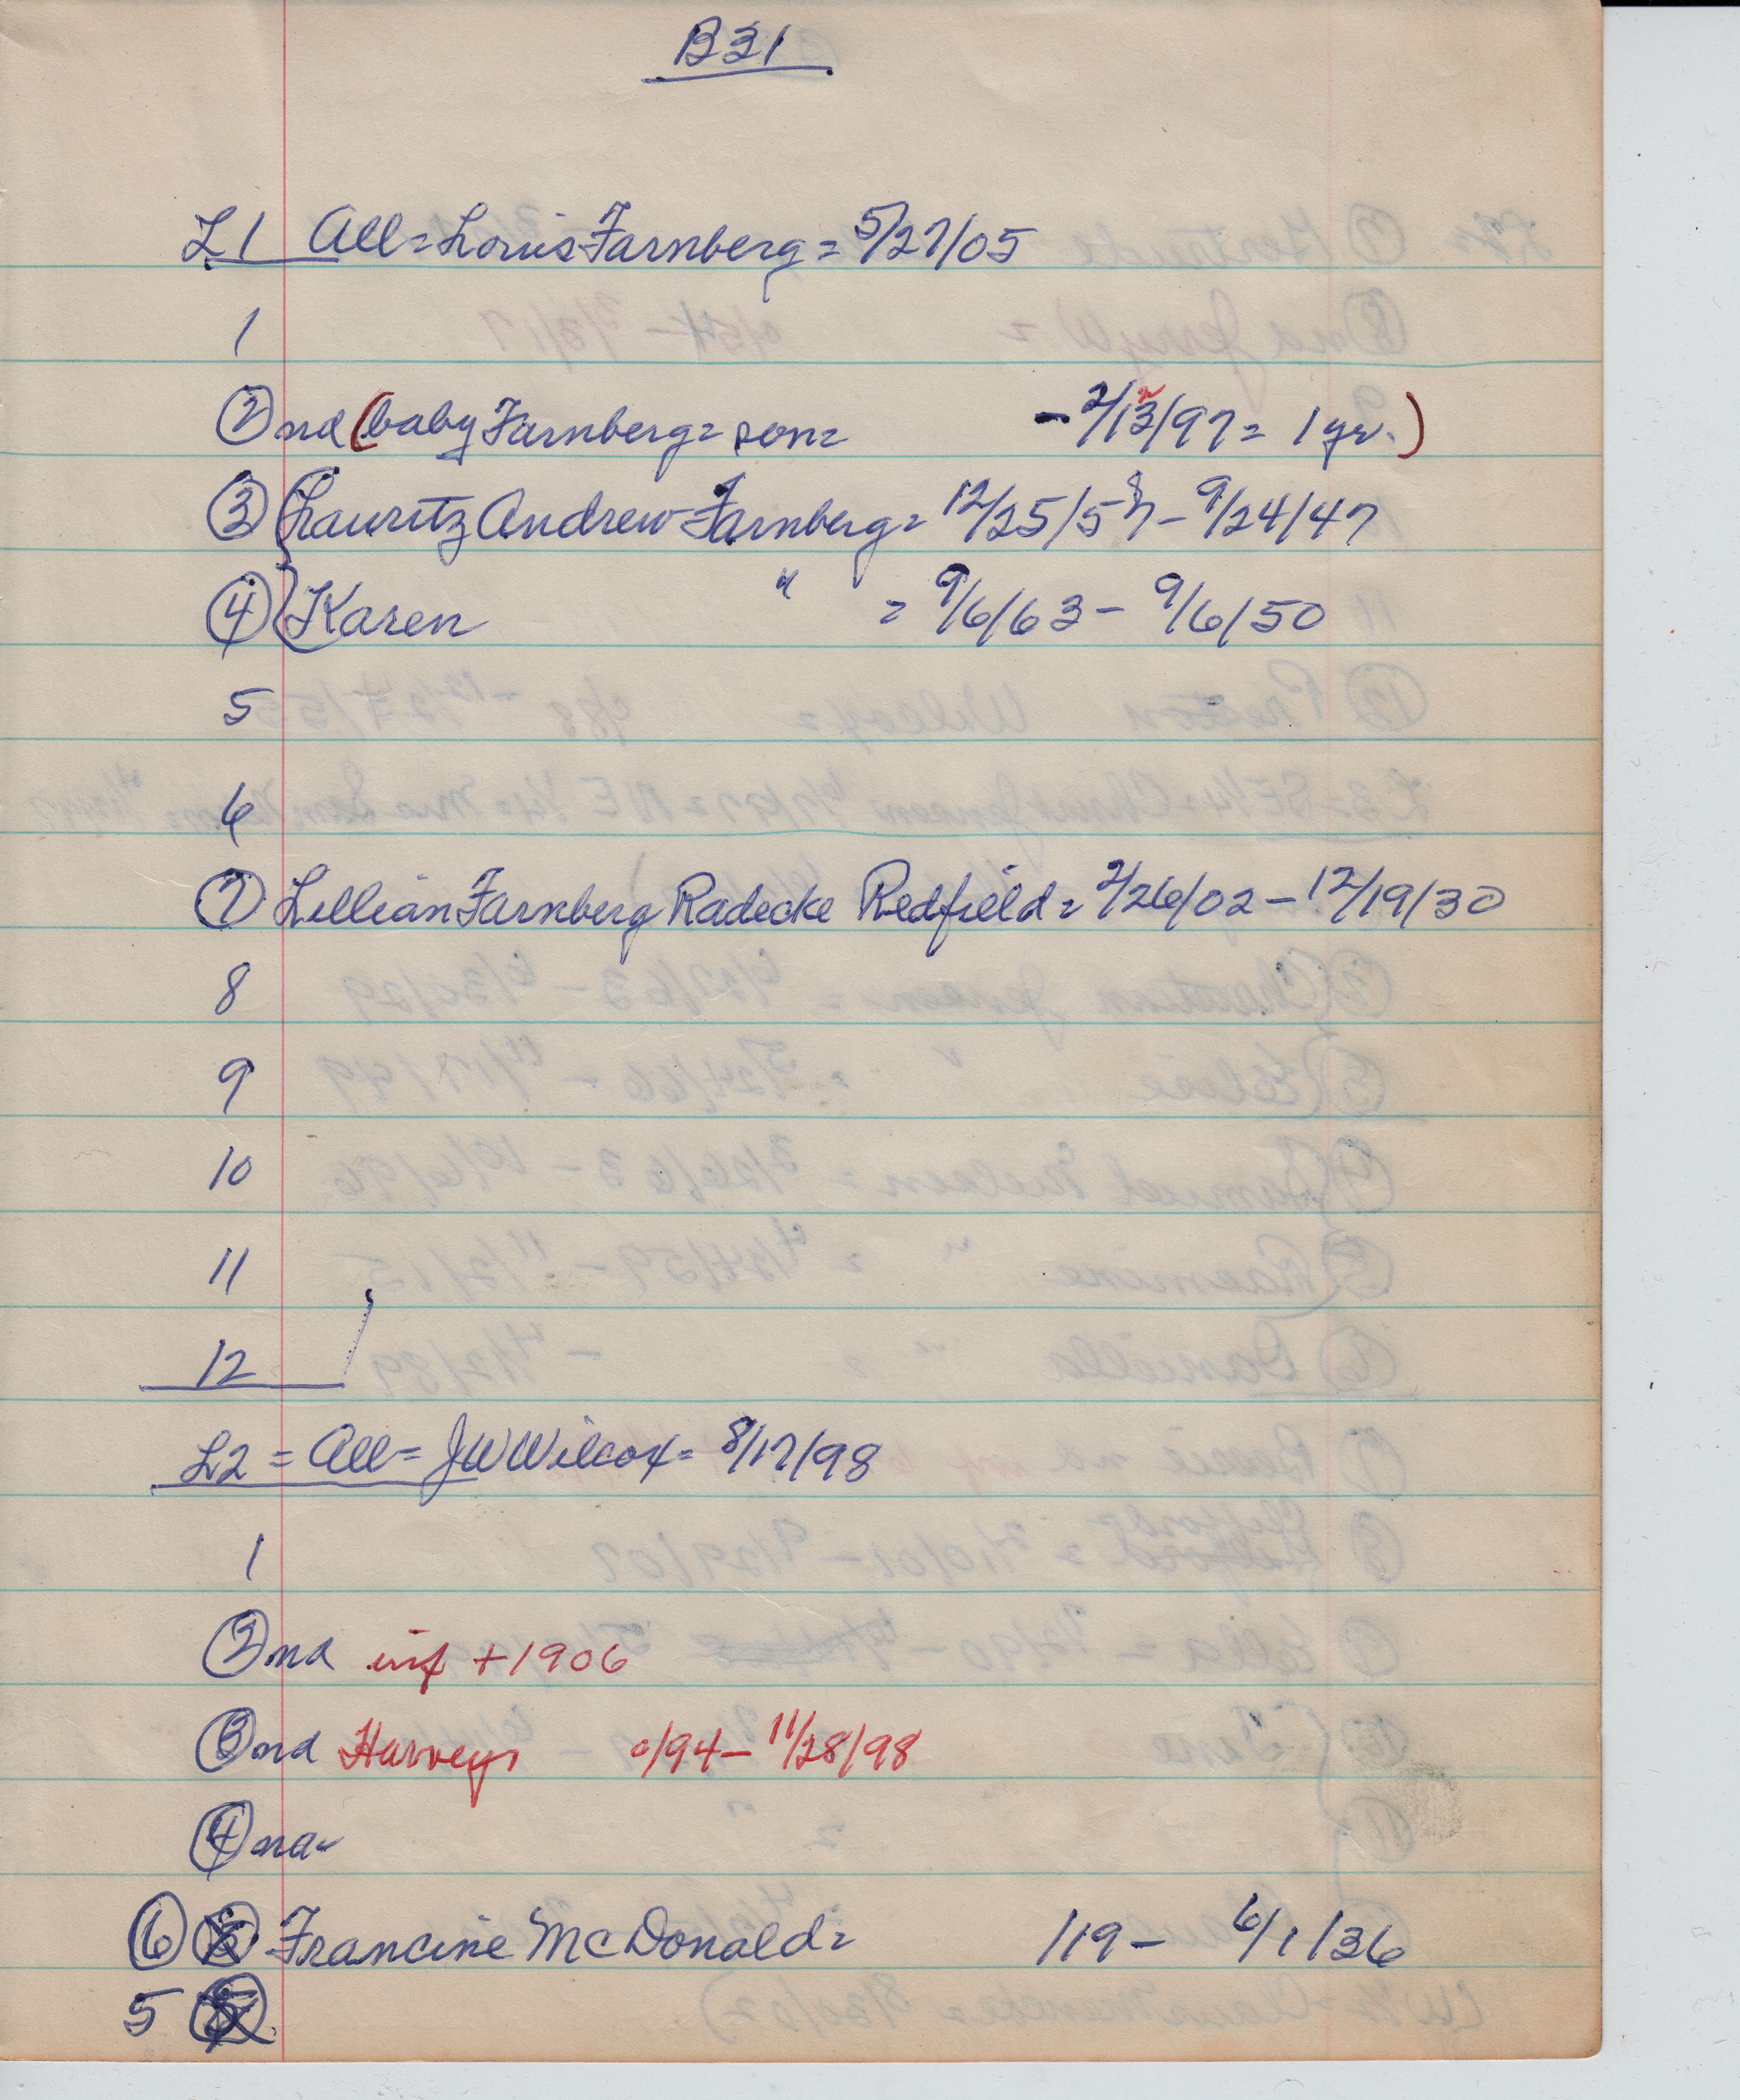 B31
L1 All = Louis Farnberg = 5/27/05
1
2 nd (baby Farnberg = son = - 2/13/97 = 1 yr.)
3 Lauritz Andrew Farnberg = 12/25/57 - 9/24/47
4 Karen " = 9/6/63 - 9/6/50
5
6
7 Lillian Farnberg Radecke Redfield = 2/26/02 - 12/19/30
8
9
10
11
12
L2 = All = JW Wilcox = 8/17/98
1
2 nd inf + 1906
3 nd Harvey 0/94 - 11/28/98
4 nd
6 Francine McDonald = /19 - 6/1/36
5